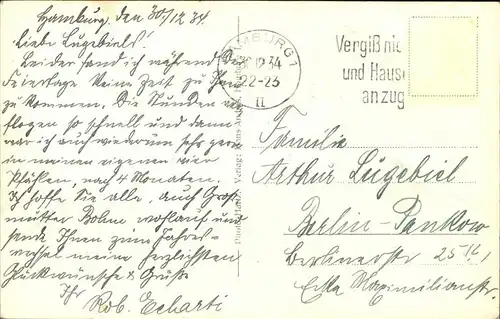 Hamburg, den 30./12.34.
Liebe Lügebiels!
Leider fand ich während der
Feiertage keine Zeit zu Ihnen
zu kommen. Die Stunden ver-
flogen so schnell und dann
war ich auch wiederum sehr gern
in meinen eigenen vier
Pfählen, nach 4 Monaten.
Ich hoffe Sie alle, auch Groß-
mutter Böhme wohlauf und
sende Ihnen zum Jahres-
wechsel meine herzlichsten
Glückwünsche & Grüße
Ihr
Rob. Echarti
HAMBURG 1
30.12.34
22-23
II
Vergiß nic
und Hause
anzug
Familie
Arthur Lügebiel
Berlin-Pankow
Berlinerstr 25 II,
Ecke Maximilianstr.